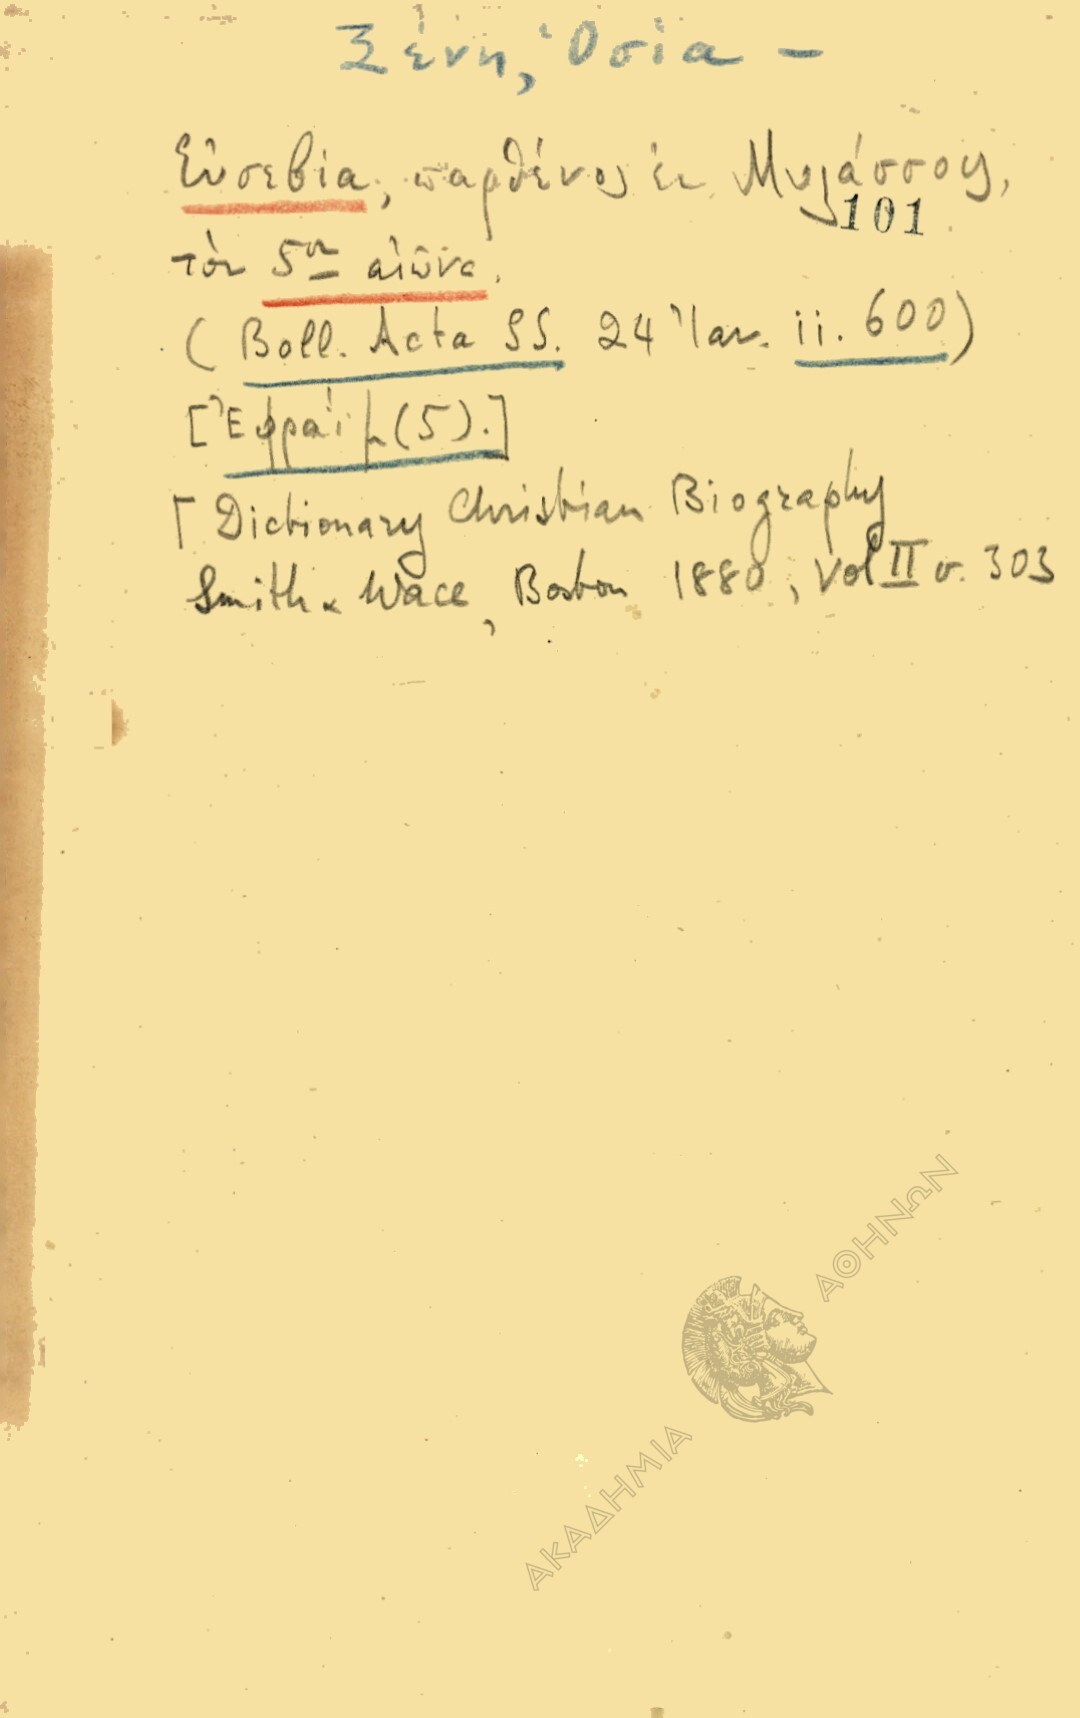 Ξένη, Ὁσία –
Εὐσεβία, παρθένος ἐκ Μυλάσσου,
101
τὸν 5ον αἰῶνα.
(Boll. Acta SS. 24 Ἰαν. ii. 600)
[Ἐφραίμ (5).]
[Dictionary Christian Biography
Smith & Wace, Boston 1880, Vol II σ. 303
ΑΚΑΔΗΜΙΑ ΑΘΗΝΩΝ